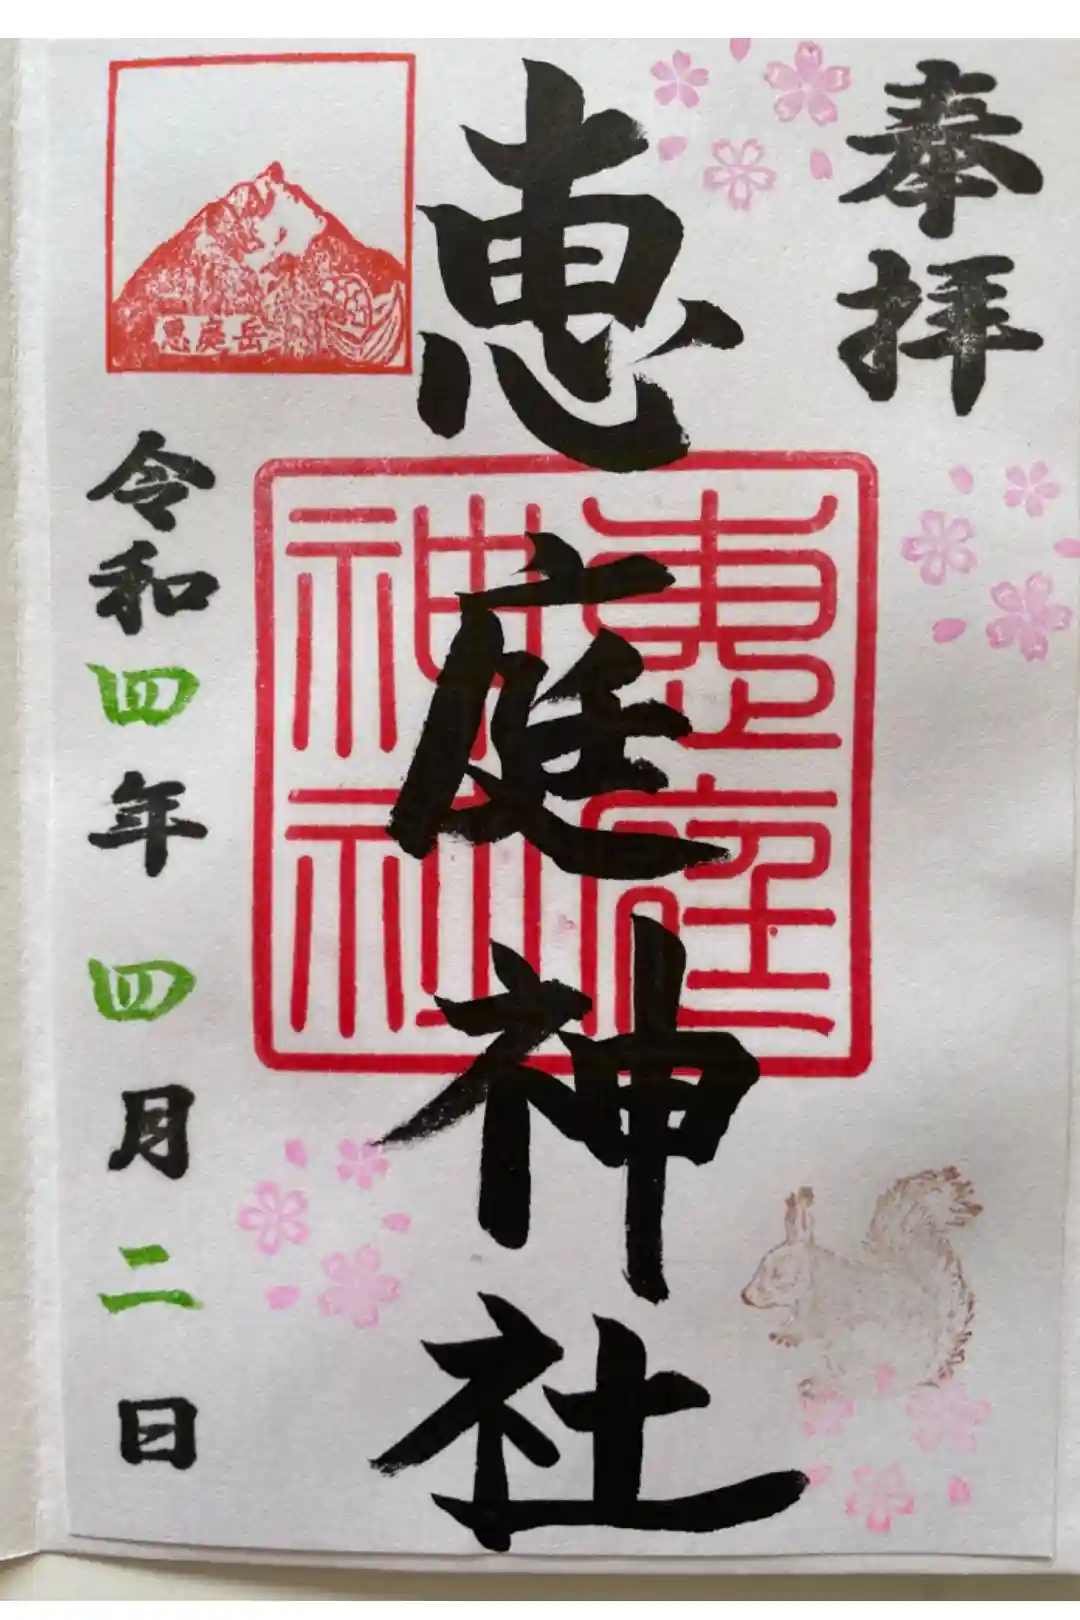 奉拝
恵庭神社
恵庭
神社
恵庭岳
令和四年四月二日